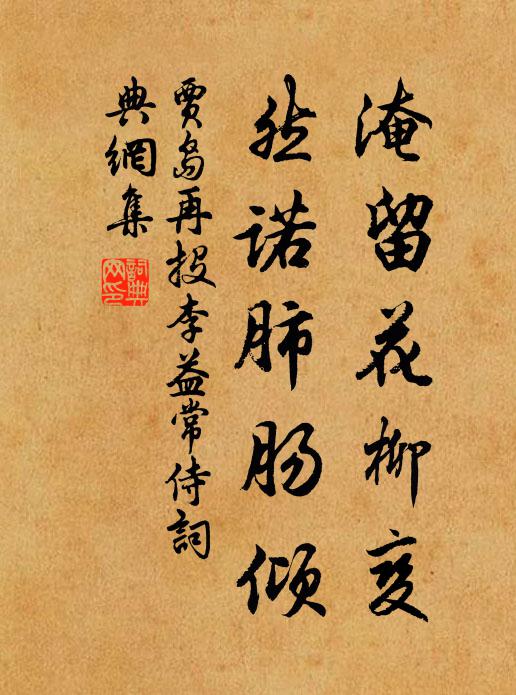 淹留花柳变
然诺肺肠倾
賈島再投李益常侍詞
典網集
詞典網印